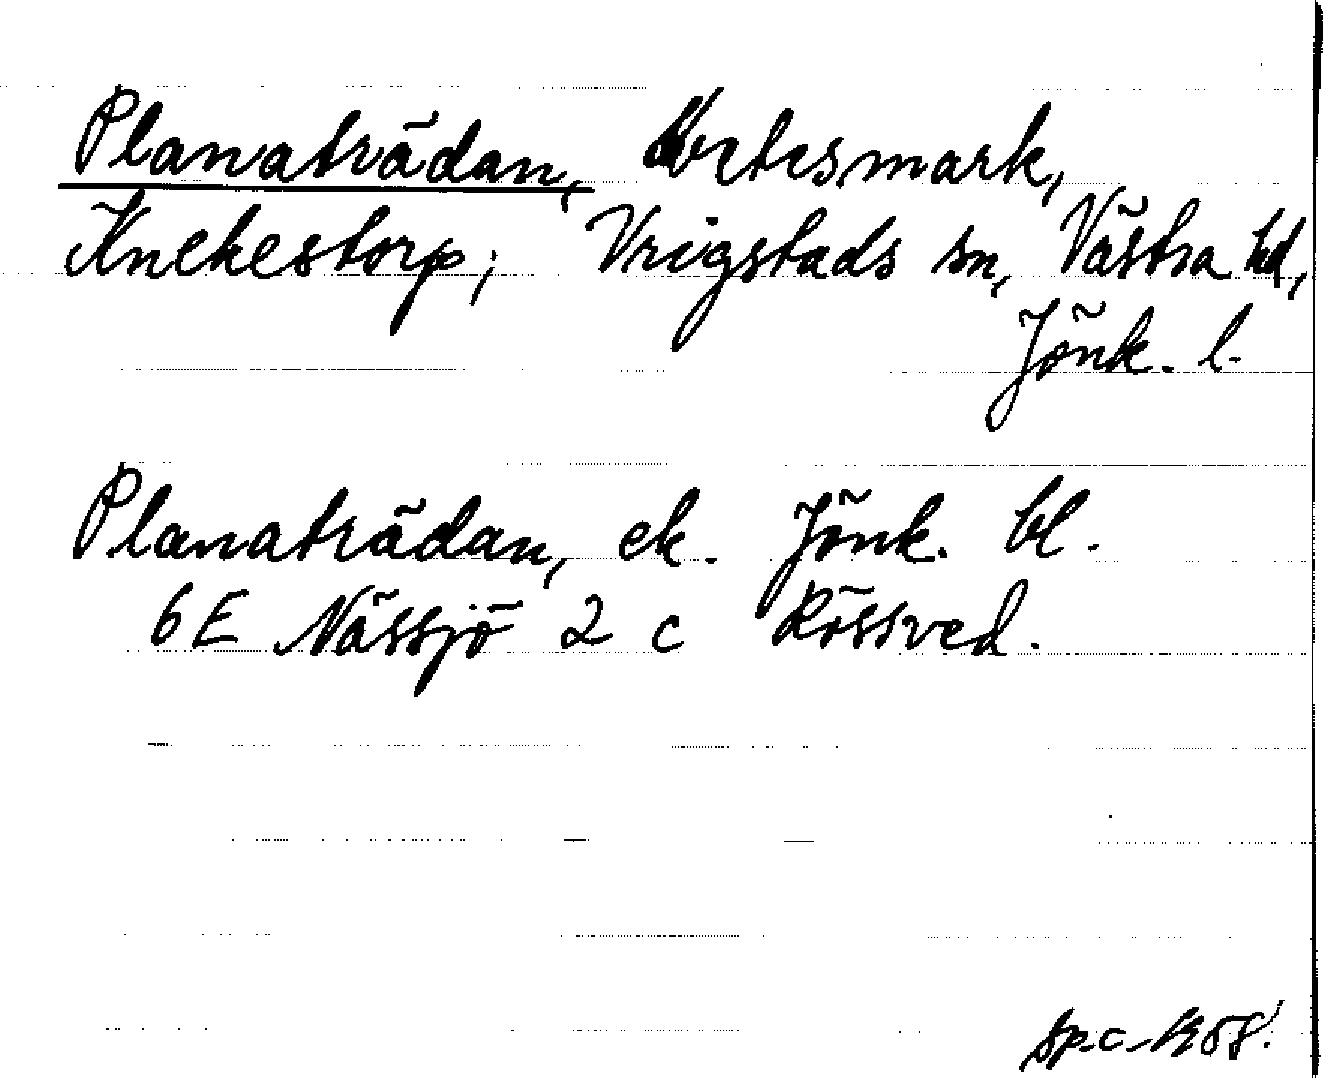 Planaträdan, betesmark,
Änekestorp; Vrigstads sn, Västra hd,
Jönk. l.
Planaträdan, ek. Jönk. bl.
6E Nässjö 2 c Rössved.